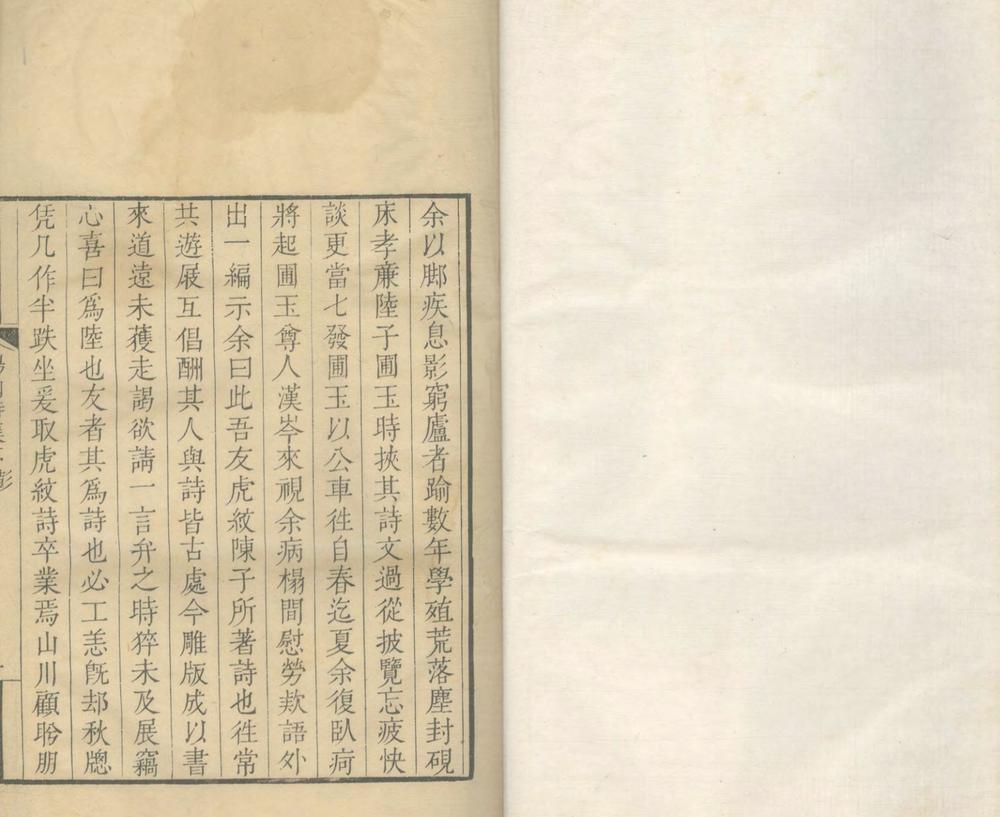 余以脚疾息影窮廬者踰數年學殖荒落塵封硯
床孝亷陸子圃玉時挾其詩文過從披覽忘疲快
談更當七發圃玉以公車徃自春迄夏余復臥疴
將起圃玉尊人漢岑來視余病榻間慰勞欵語外
出一編示余曰此吾友虎紋陳子所著詩也徃常
共遊展互倡酬其人與詩皆古處今雕版成以書
來道遠未獲走謁欲請一言弁之時猝未及展竊
心喜曰爲陸也友者其爲詩也必工恙旣却秋牕
凭几作半趺坐爰取虎紋詩卒業焉山川顧盼朋